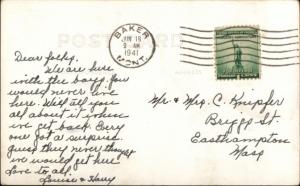 POST CARD
BAKER
JUN 18
9 AM
1941
MONT.
ADDRESS
Dear folks,
We are here
with the boys. You
would never live
here. Will tell you
all about it when
we get back. Every
one got a surprise.
guess they never thought
we would get here
Love to all.
Louise & Harry
Mr & Mrs. C. Knipfer
Briggs St.
Easthampton
Mass